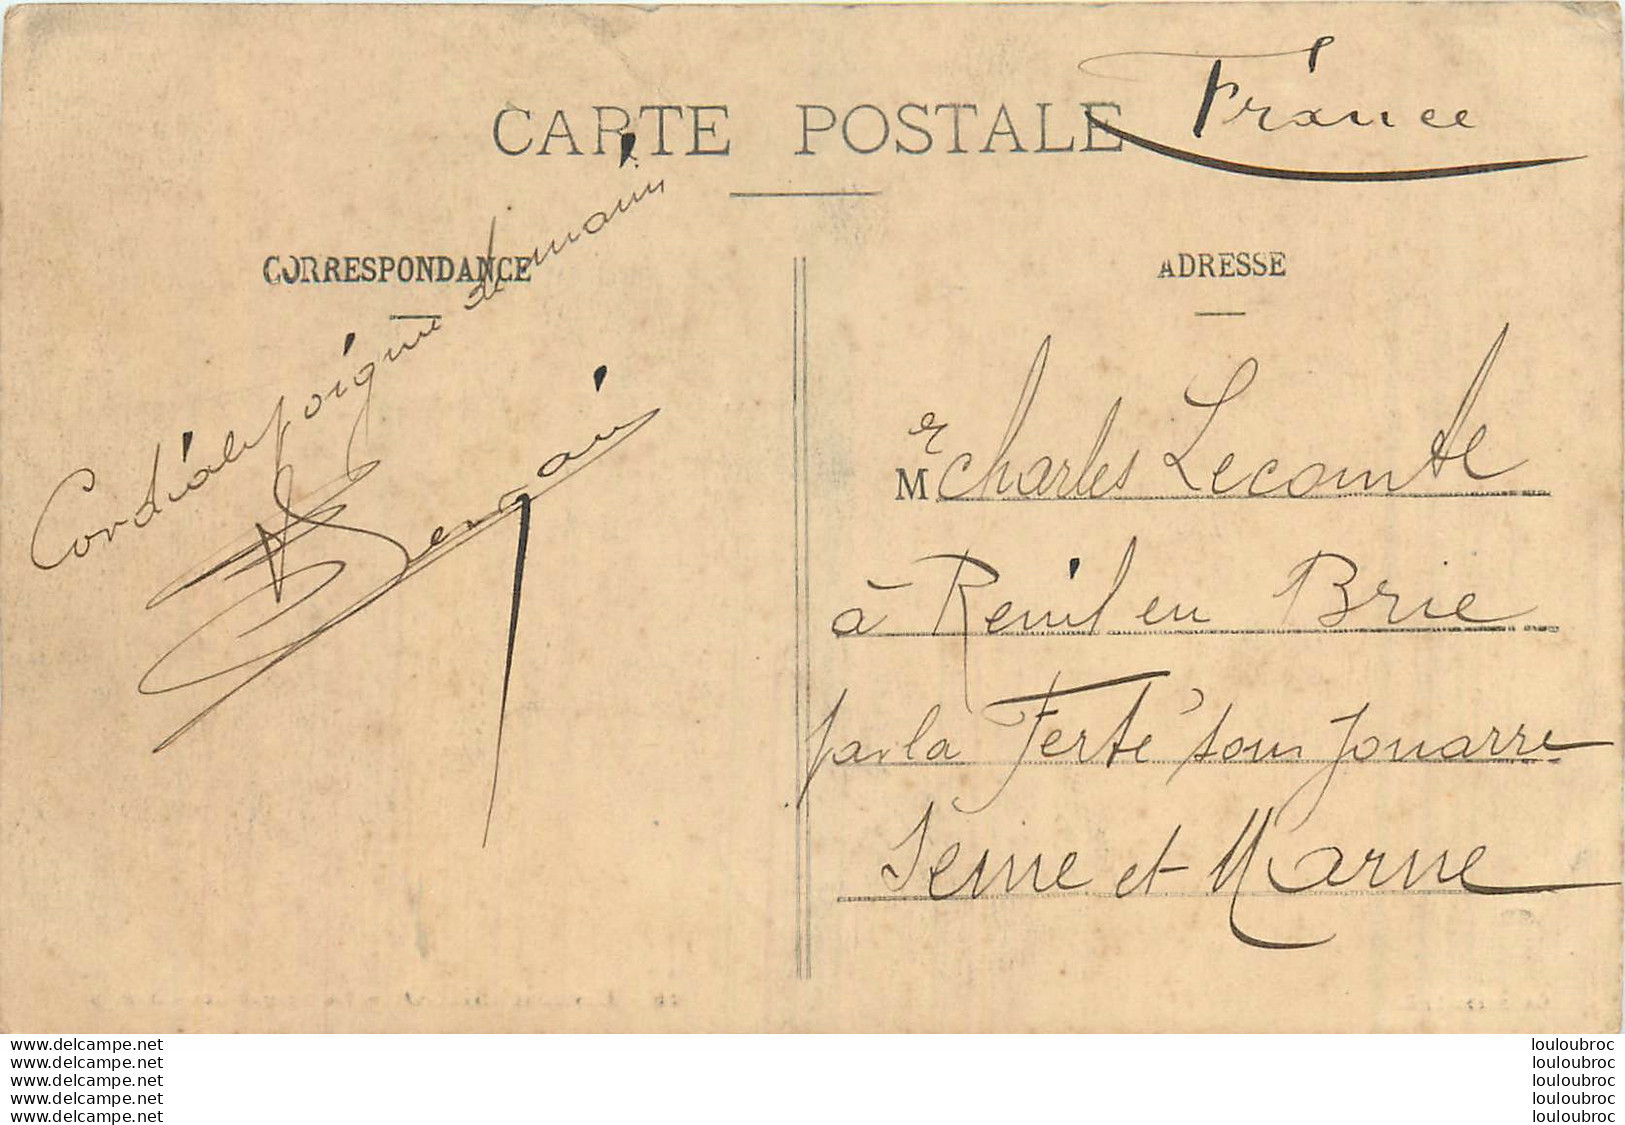 CARTE POSTALE
France
CORRESPONDANCE
Cordiale poignée de main
ADRESSE
Mr Charles Lecomte
à Reuil en Brie
par la Ferté sous Jouarre
Seine et Marne
www.delcampe.net
www.delcampe.net
www.delcampe.net
www.delcampe.net
www.delcampe.net
louloubroc
louloubroc
louloubroc
louloubroc
louloubroc